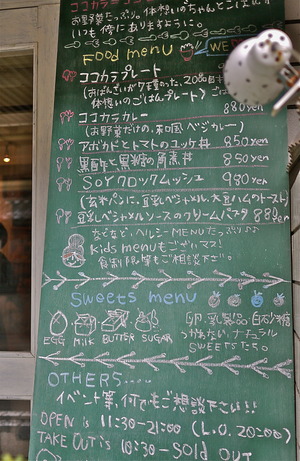 お野菜たっぷり。体想いのちゃんとごはんが
いつも傍にありますように。
FOOD menu
ココカラプレート
(おばんざいが
体想いのごはんプレート)
ココカラカレー 880yen
(お野菜だけの、和風ベジカレー)
アボカドとトマトのユッケ丼 850yen
黒酢と黒糖の角煮丼 850yen
SOYクロックムッシュ 980yen
(玄米パンに、豆乳ベシャメル、大豆ハムのトースト)
豆乳ベシャメルソースのクリームパスタ 880yen
などなど、ヘルシーMENUたっぷり♪♪
Kids menuもございマス!
食制限等もご相談下さい。
Sweets menu
EGG MILK BUTTER SUGAR
卵、乳製品、白砂糖
つかわない、ナチュラル
SWEETSたち。
OTHERS.....
イベント等、何でもご想談下さい!!
OPEN is 11:30-21:00 (L.O. 20:00)
TAKE OUT is 10:30-SOLD OUT